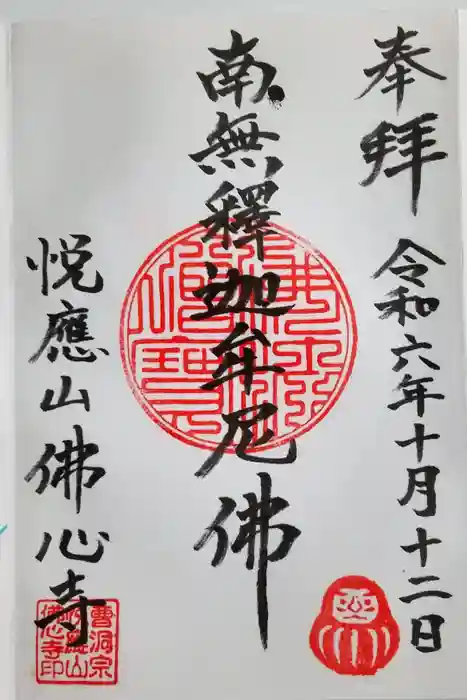 奉拝
令和六年十月十二日
南無釋迦牟尼佛
悦應山佛心寺
曹洞宗
悦應山
佛心寺印